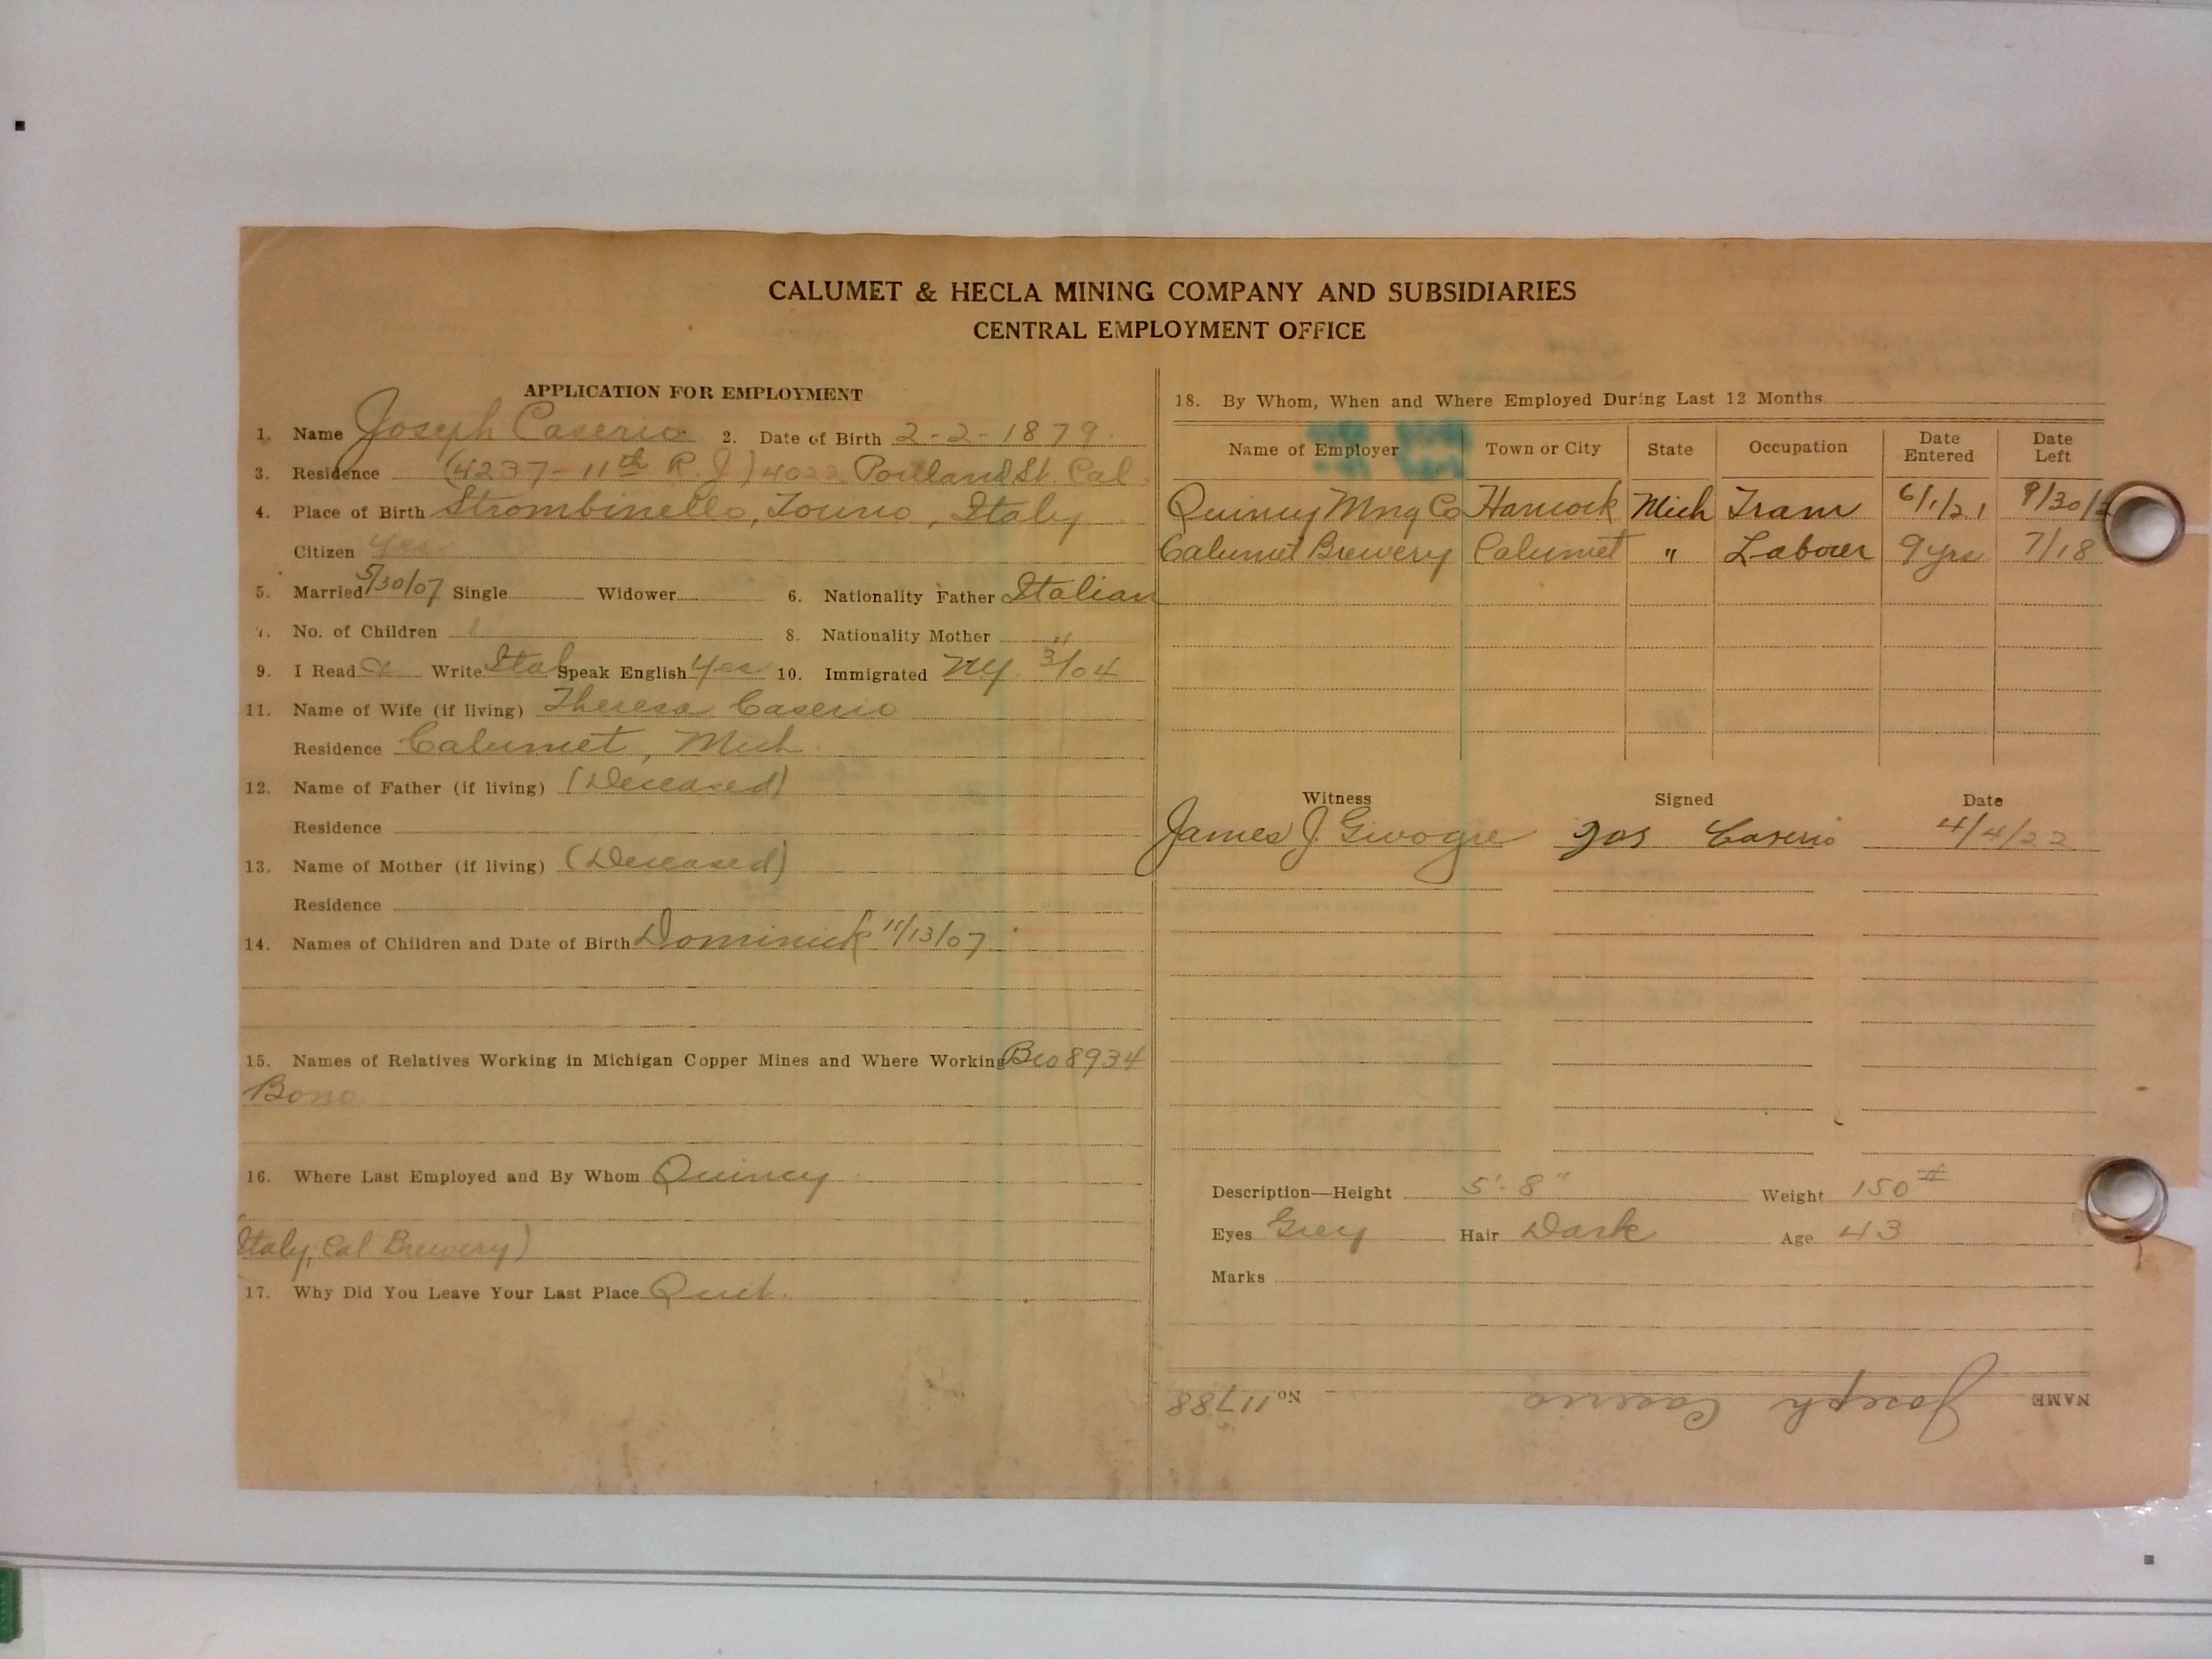 CALUMET & HECLA MINING COMPANY AND SUBSIDIARIES
CENTRAL EMPLOYMENT OFFICE
APPLICATION FOR EMPLOYMENT
1. Name Joseph Caserio 2. Date of Birth 2-2-1879
3. Residence (4237-11th R.J) 4022 Portland St. Cal
4. Place of Birth Strombinello, Torino, Italy
Citizen Yes
5. Married 5/30/07 Single Widower 6. Nationality Father Italian
7. No. of Children 1 8. Nationality Mother "
9. I Read & Write Ital Speak English Yes 10. Immigrated NY. 3/04
11. Name of Wife (if living) Theresa Caserio
Residence Calumet, Mich
12. Name of Father (if living) (Deceased)
Residence
13. Name of Mother (if living) (Deceased)
Residence
14. Names of Children and Date of Birth Dominick 11/13/07
15. Names of Relatives Working in Michigan Copper Mines and Where Working Bro 8934
Bono
16. Where Last Employed and By Whom Quincy
Italy, Cal Brewery)
17. Why Did You Leave Your Last Place Quit.
18. By Whom, When and Where Employed During Last 12 Months
Name of Employer Town or City State Occupation Date Entered Date Left
Quincy Mng Co Hancock Mich Tram 6/1/21 9/30/2
Calumet Brewery Calumet " Laborer 9 yrs 7/18
Witness Signed Date
James J. Jos Caserio 4/4/22
Description—Height 5'-8" Weight 150#
Eyes Grey Hair Dark Age 43
Marks
NAME Joseph Caserio No. 11788